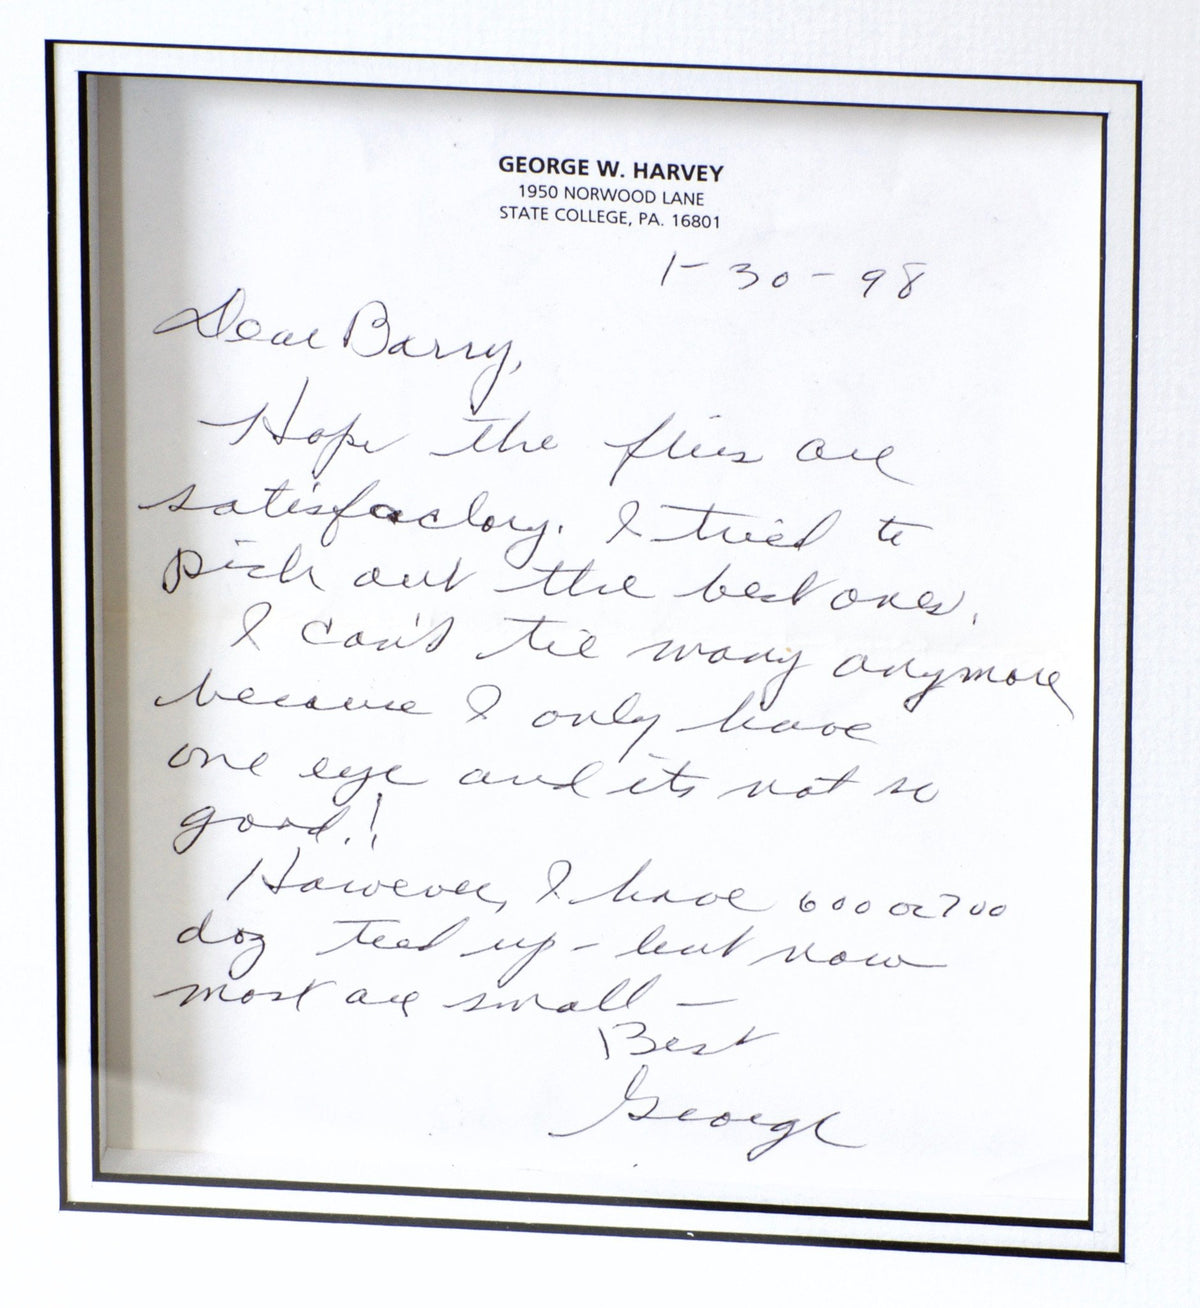 GEORGE W. HARVEY
1950 NORWOOD LANE
STATE COLLEGE, PA. 16801
1-30-98
Dear Barry,
Hope the flies are
satisfactory. I tried to
pick out the best ones.
I can't tie many anymore
because I only have
one eye and its not so
good!
However, I have 600 or 700
doz tied up - but now
most are small -
Best
George